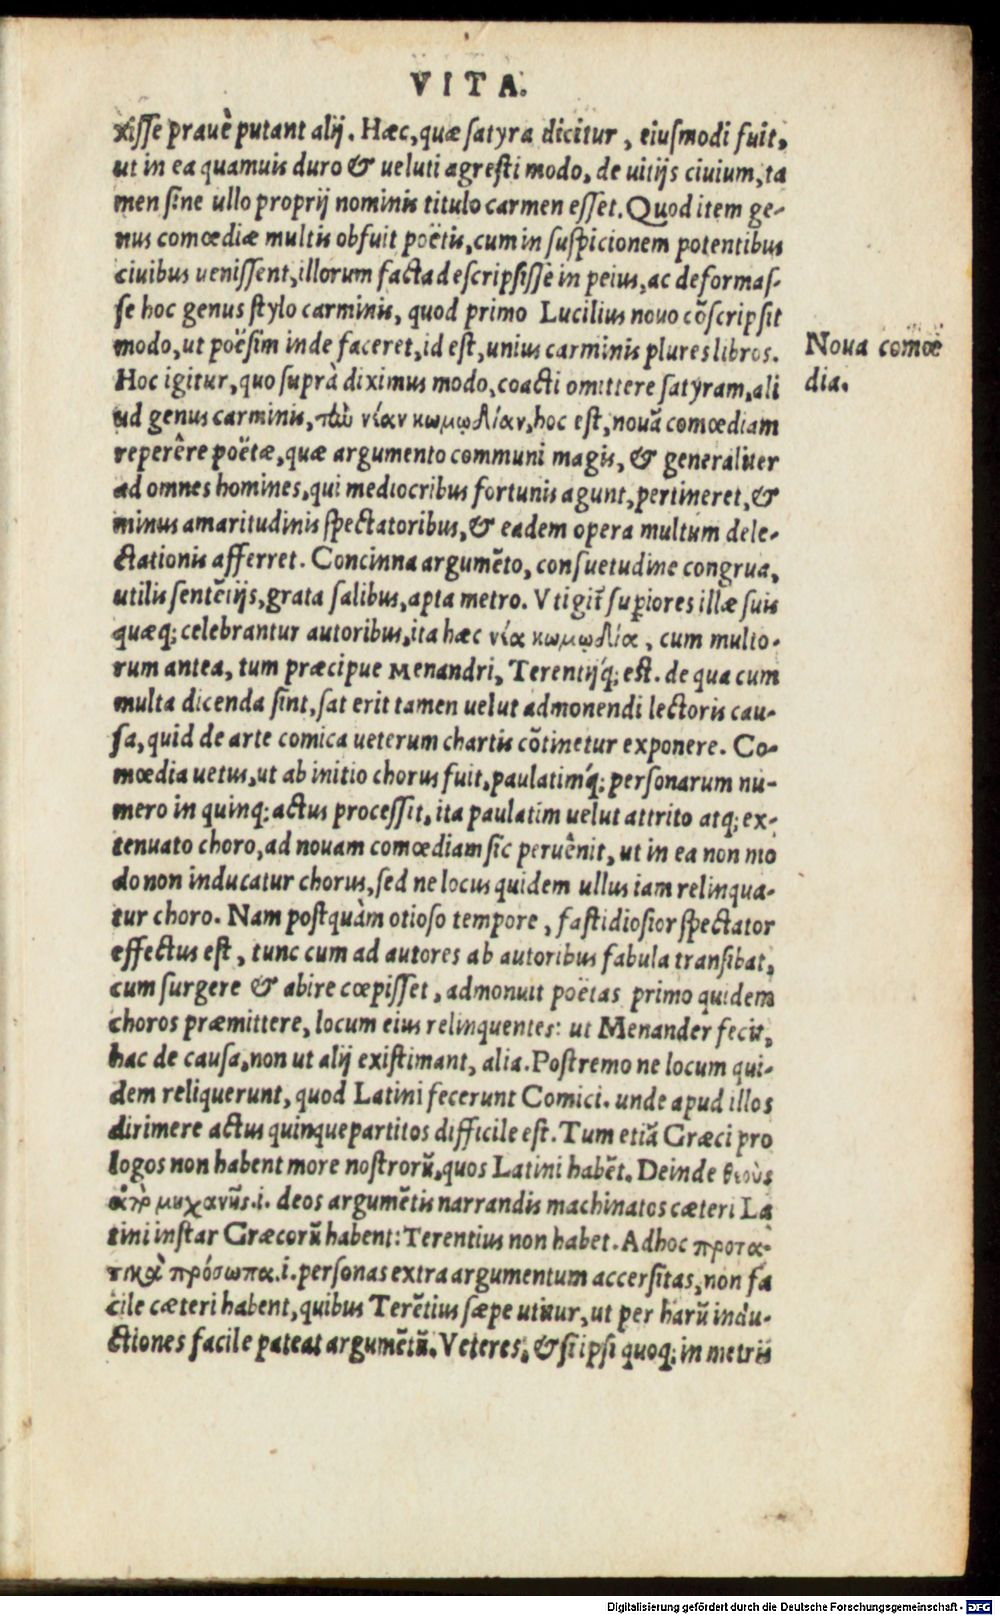 VITA.
xisse prauè putant alij. Hæc, quæ satyra dicitur, eiusmodi fuit,
ut in ea quamuis duro & ueluti agresti modo, de uitijs ciuium, ta
men sine ullo proprij nominis titulo carmen esset. Quod item ge-
nus comœdiæ multis obfuit poëtis, cum in suspicionem potentibus
ciuibus uenissent, illorum facta descripsisse in peius, ac deformas-
se hoc genus stylo carminis, quod primo Lucilius nouo cõscripsit
modo, ut poësim inde faceret, id est, unius carminis plures libros.
Noua comœ
dia.
Hoc igitur, quo suprà diximus modo, coacti omittere satyram, ali
ud genus carminis, τὴν νέαν κωμῳδίαν, hoc est, nouã comœdiam
reperêre poëtæ, quæ argumento communi magis, & generaliter
ad omnes homines, qui mediocribus fortunis agunt, pertineret, &
minus amaritudinis spectatoribus, & eadem opera multum dele-
ctationis afferret. Concinna argumẽto, consuetudine congrua,
utilis sentẽtijs, grata salibus, apta metro. Vt igit̃ supiores illæ suis
quæq; celebrantur autoribus, ita hæc νέα κωμῳδία, cum multo-
rum antea, tum præcipue Menandri, Terentijq́; est. de qua cum
multa dicenda sint, sat erit tamen uelut admonendi lectoris cau-
sa, quid de arte comica ueterum chartis cõtinetur exponere. Co-
mœdia uetus, ut ab initio chorus fuit, paulatimq́; personarum nu-
mero in quinq; actus processit, ita paulatim uelut attrito atq; ex-
tenuato choro, ad nouam comœdiam sic peruênit, ut in ea non mo
do non inducatur chorus, sed ne locus quidem ullus iam relinqua-
tur choro. Nam postquàm otioso tempore, fastidiosior spectator
effectus est, tunc cum ad autores ab autoribus fabula transibat,
cum surgere & abire cœpisset, admonuit poëtas primo quidem
choros præmittere, locum eius relinquentes: ut Menander fecit,
hac de causa, non ut alij existimant, alia. Postremo ne locum qui-
dem reliquerunt, quod Latini fecerunt Comici. unde apud illos
dirimere actus quinquepartitos difficile est. Tum etiã Græci pro
logos non habent more nostrorũ, quos Latini habẽt. Deinde θεοὺς
ἀπὸ μηχανῆς .i. deos argumẽtis narrandis machinatos cæteri La
tini instar Græcorũ habent: Terentius non habet. Ad hoc προτα-
τικὰ πρόσωπα .i. personas extra argumentum accersitas, non fa
cile cæteri habent, quibus Terẽtius sæpe utitur, ut per harũ indu-
ctiones facile pateat argumẽtũ. Veteres, & si ipsi quoq; in metris
Digitalisierung gefördert durch die Deutsche Forschungsgemeinschaft - DFG